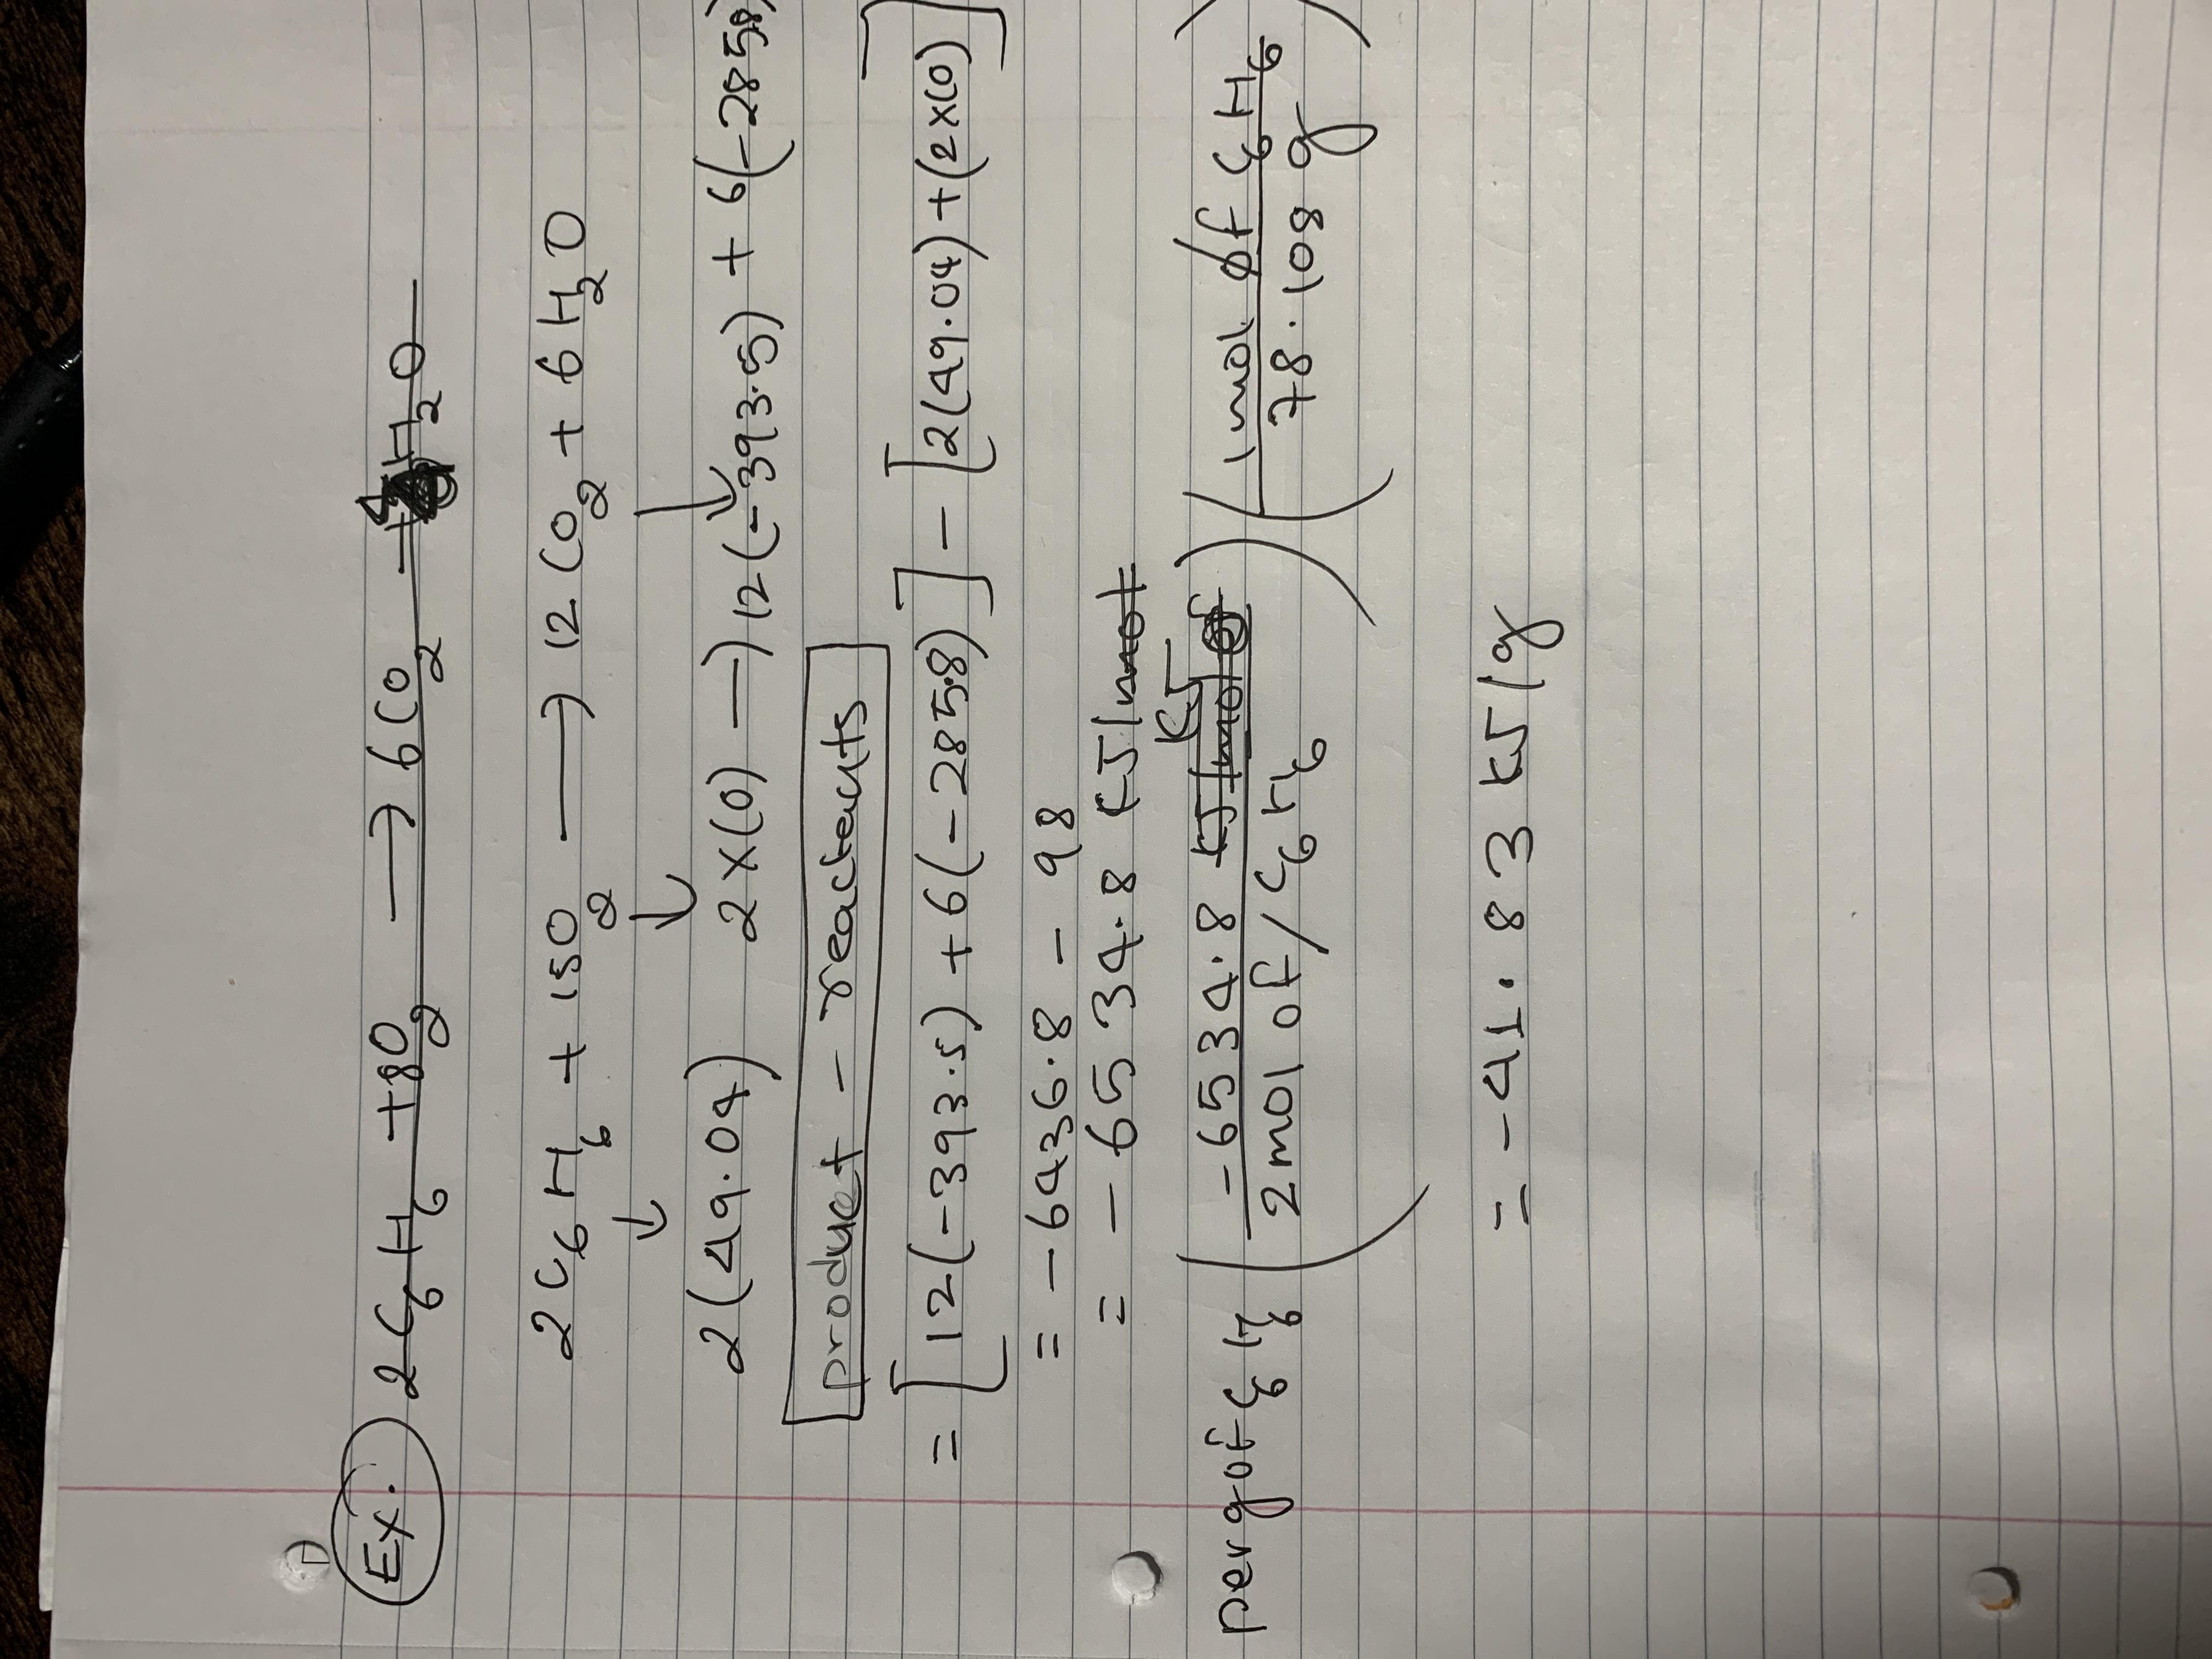 Ex. 2C6H6 + 8O2 → 6CO2 + H2O
2C6H6 + 15O2 → 12CO2 + 6H2O
↓ ↓ ↓
2(49.04) 2×(0) → 12(-393.5) + 6(-285.8)
product - reactents
= [12(-393.5) + 6(-285.8)] - [2(49.04) + (2×(0)]
= -6436.8 - 98
= -6534.8 KJ/mol
KJ
per g of C6H6 (-6534.8 KJ/mol of / 2 mol of C6H6) (1 mol of C6H6 / 78.108 g)
= -41.83 KJ/g